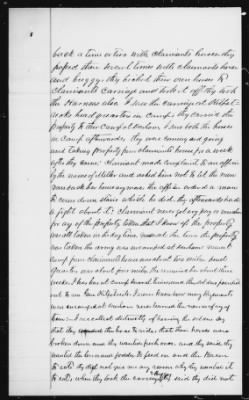 back a time or two with claimants horses they
passed there several times with claimants horse
and buggy. they hitched their own horses to
Claimants carriage and took it off they took
the Harness also I saw the carriage at Kilpat-
ricks head quarters in Camp they carried the
property to their Camp at Durham. I saw both the horses
in Camp afterwards they was coming and going
and taking property from claimants house for a week
after they came. Claimant made complaint to an officer
by the name of Miller and asked him not to let the men
ransack her house any more the officer ordered a man
to come down stairs which he did. they afterwards had
a fight about it; Claimant never got any pay or voucher
for any of the property taken that I know of the property
was taken in the day time, and at the time the property
was taken the army was encamped at Durham near the
Camp from claimants house was about two miles head
Quarters was about five miles. they remained there about three
weeks. I was there at Camp
to see Gen. Kilpatrick. I never knew how many Regiments
was encamped at Durham never learned the names of any of
them: I recollect distinctly of hearing the soldiers say
that they the horse to ride, that their horses were
broken down and they wanted fresh ones. and they said they
wanted the corn and fodder to feed on and the Bacon
to eat they did not give me any reason why they wanted it
to eat, when they took the carriage they said they did not